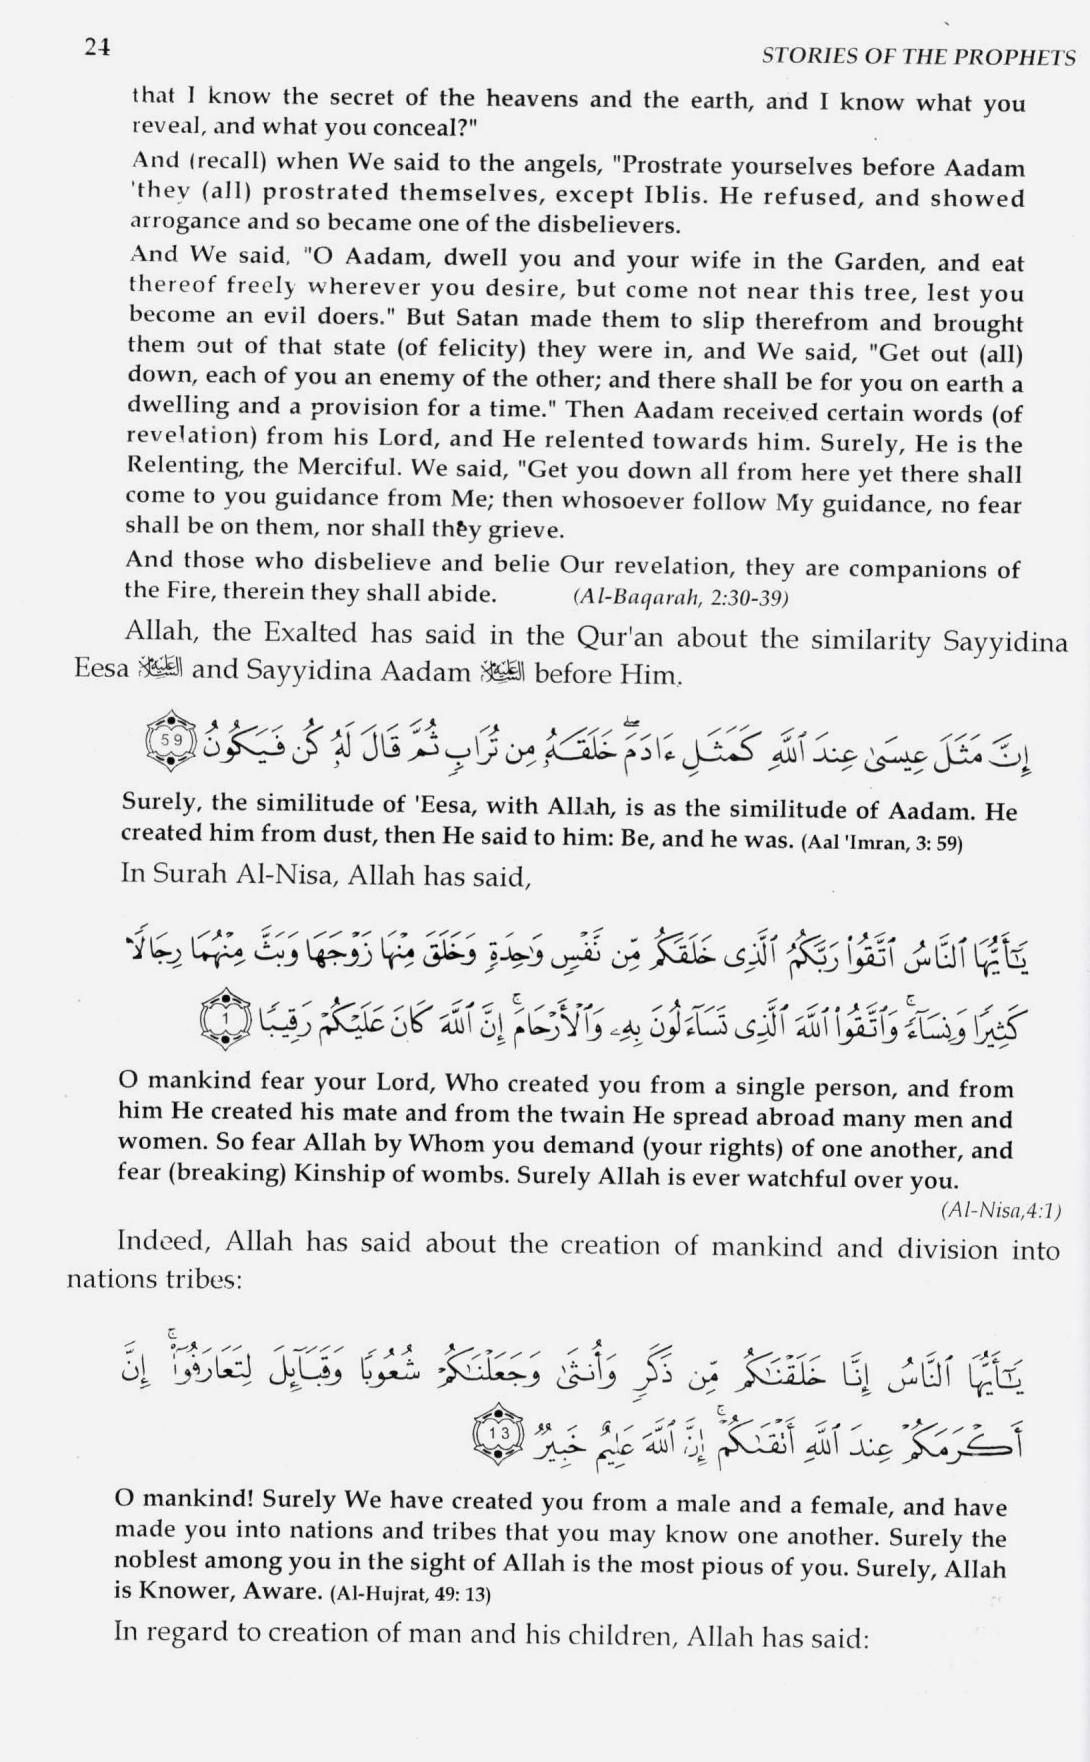 24
STORIES OF THE PROPHETS
that I know the secret of the heavens and the earth, and I know what you
reveal, and what you conceal?"
And (recall) when We said to the angels, "Prostrate yourselves before Aadam
'they (all) prostrated themselves, except Iblis. He refused, and showed
arrogance and so became one of the disbelievers.
And We said, "O Aadam, dwell you and your wife in the Garden, and eat
thereof freely wherever you desire, but come not near this tree, lest you
become an evil doers." But Satan made them to slip therefrom and brought
them out of that state (of felicity) they were in, and We said, "Get out (all)
down, each of you an enemy of the other; and there shall be for you on earth a
dwelling and a provision for a time." Then Aadam received certain words (of
revelation) from his Lord, and He relented towards him. Surely, He is the
Relenting, the Merciful. We said, "Get you down all from here yet there shall
come to you guidance from Me; then whosoever follow My guidance, no fear
shall be on them, nor shall they grieve.
And those who disbelieve and belie Our revelation, they are companions of
the Fire, therein they shall abide. (Al-Baqarah, 2:30-39)
Allah, the Exalted has said in the Qur'an about the similarity Sayyidina
Eesa عليه السلام and Sayyidina Aadam عليه السلام before Him.
إِنَّ مَثَلَ عِيسَىٰ عِندَ ٱللَّهِ كَمَثَلِ ءَادَمَ ۖ خَلَقَهُۥ مِن تُرَابٍ ثُمَّ قَالَ لَهُۥ كُن فَيَكُونُ 59
Surely, the similitude of 'Eesa, with Allah, is as the similitude of Aadam. He
created him from dust, then He said to him: Be, and he was. (Aal 'Imran, 3: 59)
In Surah Al-Nisa, Allah has said,
يَـٰٓأَيُّهَا ٱلنَّاسُ ٱتَّقُوا۟ رَبَّكُمُ ٱلَّذِى خَلَقَكُم مِّن نَّفْسٍ وَٰحِدَةٍ وَخَلَقَ مِنْهَا زَوْجَهَا وَبَثَّ مِنْهُمَا رِجَالًا
كَثِيرًا وَنِسَآءً ۚ وَٱتَّقُوا۟ ٱللَّهَ ٱلَّذِى تَسَآءَلُونَ بِهِۦ وَٱلْأَرْحَامَ ۚ إِنَّ ٱللَّهَ كَانَ عَلَيْكُمْ رَقِيبًا 1
O mankind fear your Lord, Who created you from a single person, and from
him He created his mate and from the twain He spread abroad many men and
women. So fear Allah by Whom you demand (your rights) of one another, and
fear (breaking) Kinship of wombs. Surely Allah is ever watchful over you.
(Al-Nisa,4:1)
Indeed, Allah has said about the creation of mankind and division into
nations tribes:
يَـٰٓأَيُّهَا ٱلنَّاسُ إِنَّا خَلَقْنَـٰكُم مِّن ذَكَرٍ وَأُنثَىٰ وَجَعَلْنَـٰكُمْ شُعُوبًا وَقَبَآئِلَ لِتَعَارَفُوٓا۟ ۚ إِنَّ
أَكْرَمَكُمْ عِندَ ٱللَّهِ أَتْقَىٰكُمْ ۚ إِنَّ ٱللَّهَ عَلِيمٌ خَبِيرٌ 13
O mankind! Surely We have created you from a male and a female, and have
made you into nations and tribes that you may know one another. Surely the
noblest among you in the sight of Allah is the most pious of you. Surely, Allah
is Knower, Aware. (Al-Hujrat, 49: 13)
In regard to creation of man and his children, Allah has said: